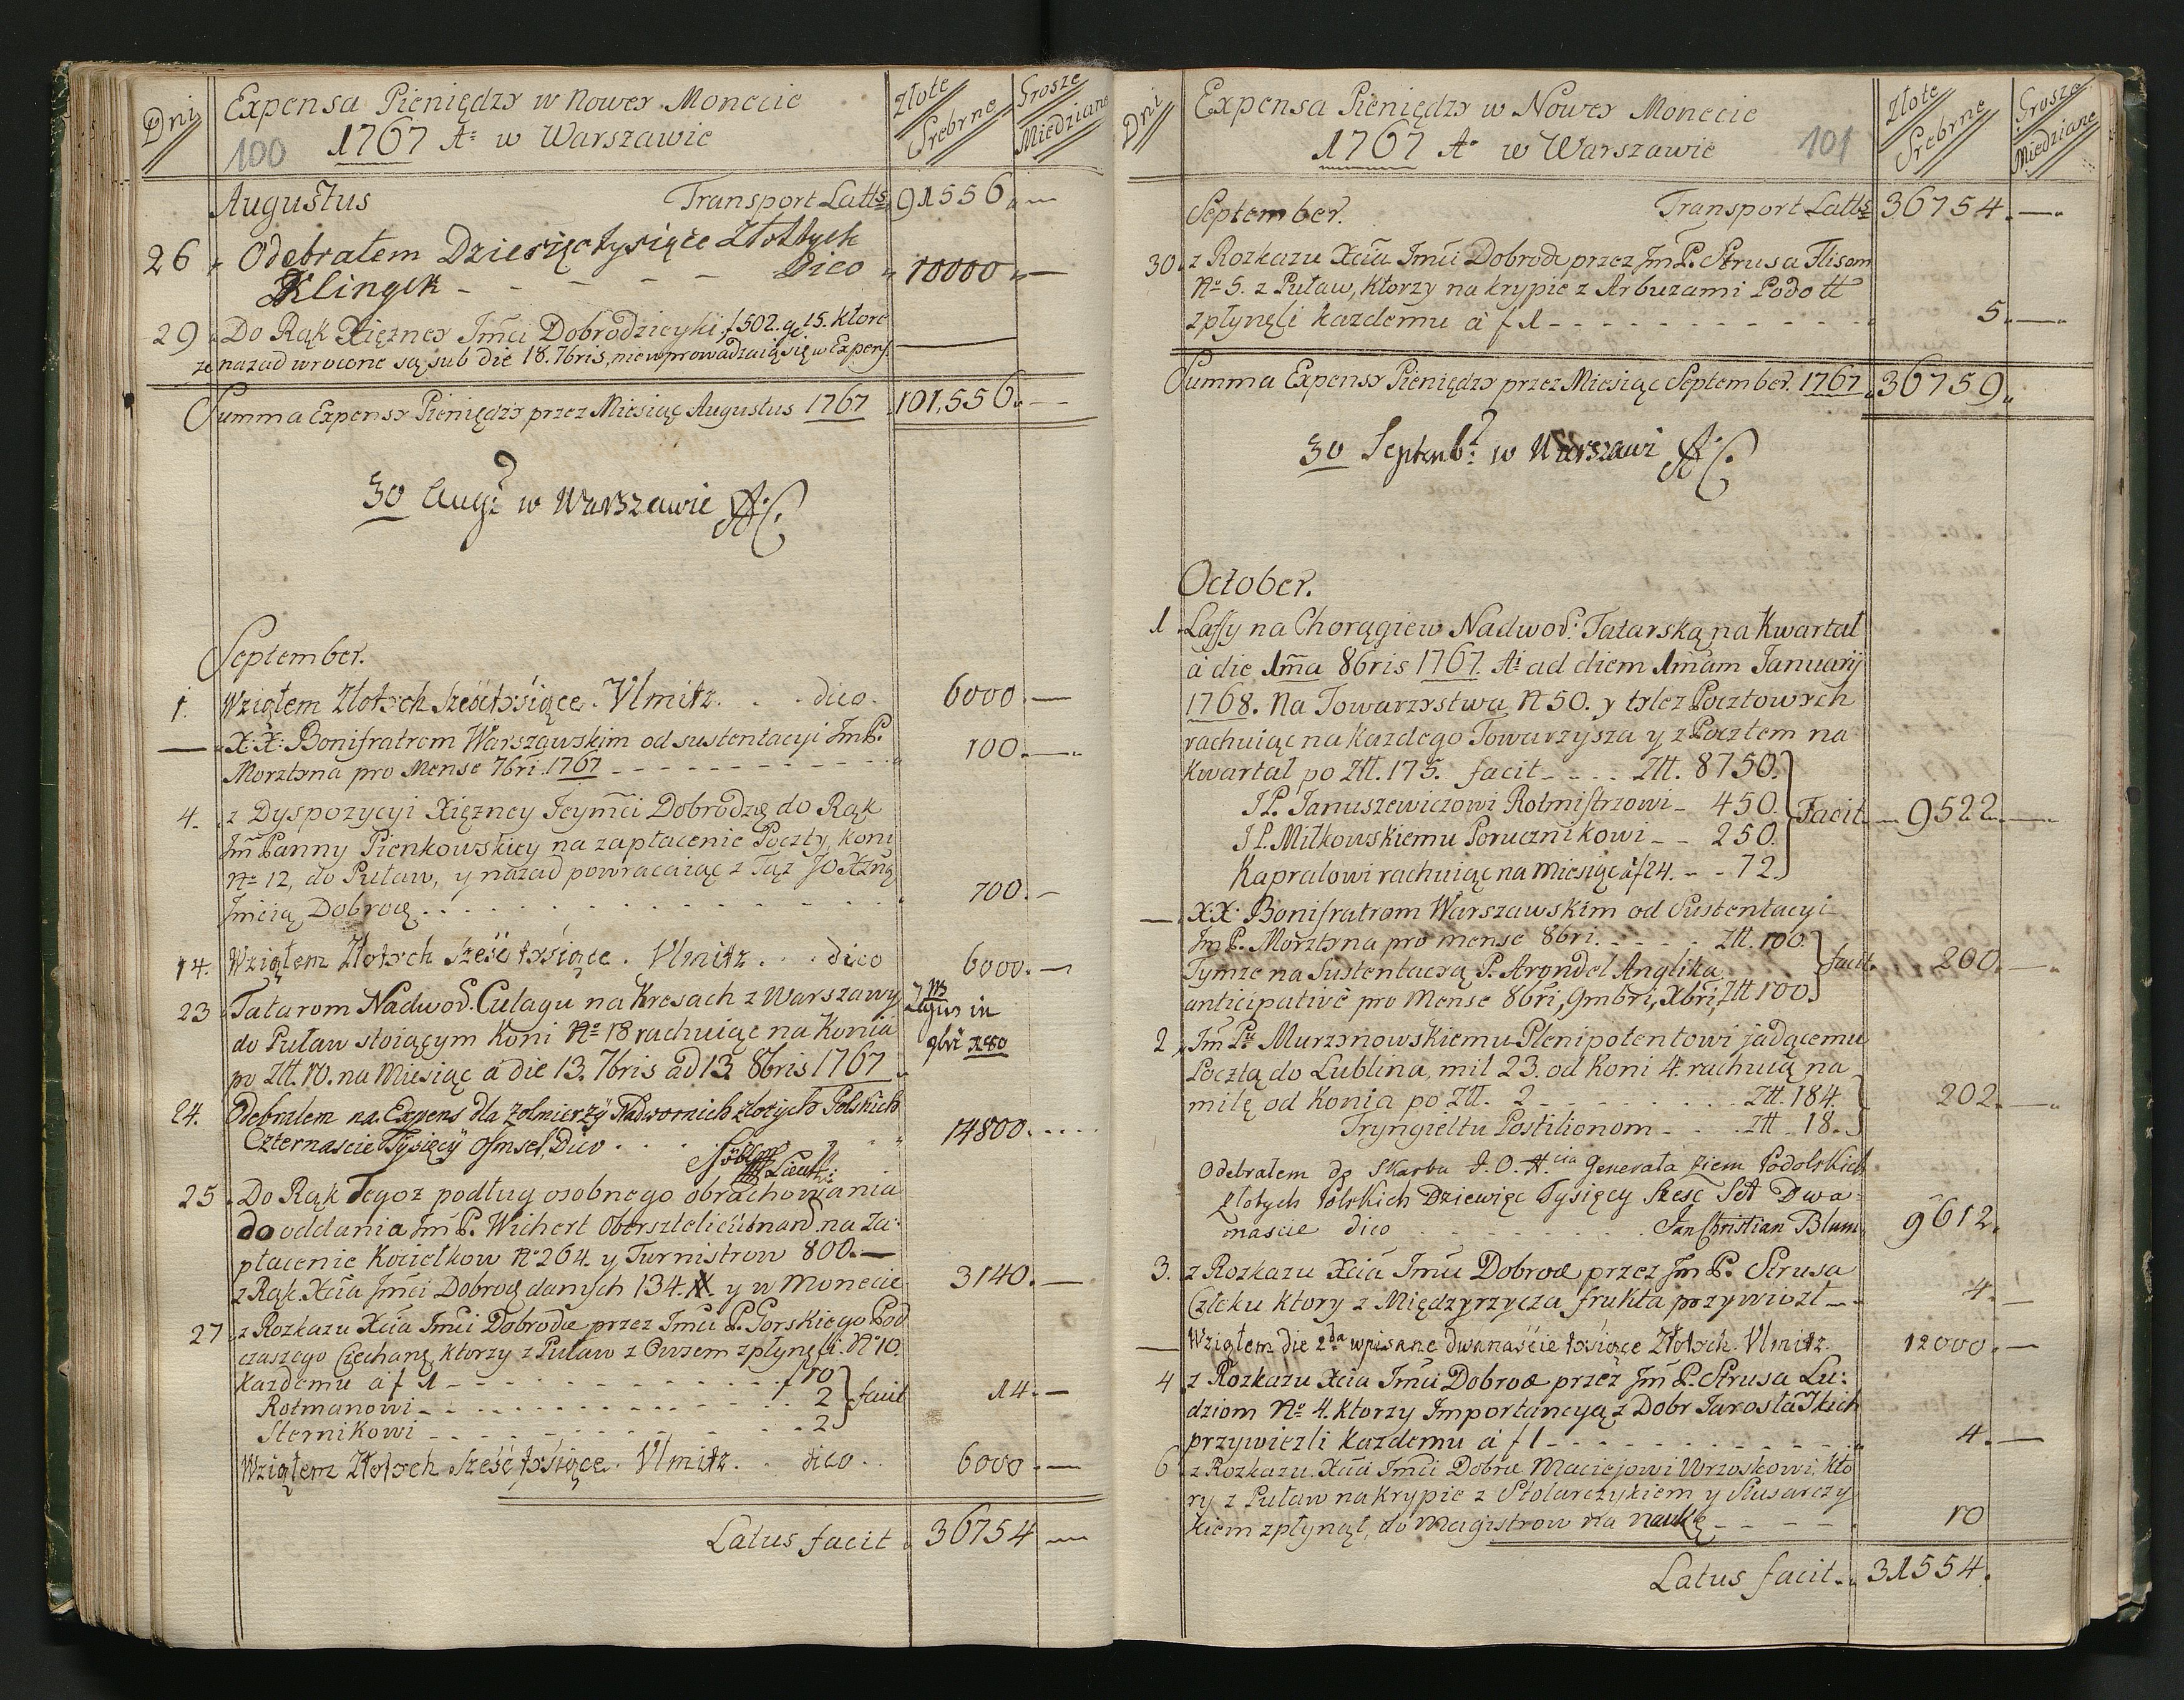 Dni
Expensa Pieniędzy w Nowey Monecie
Złote Srebrne
Grosze Miedziane
100 1767 A: w Warszawie
Augustus Transport Latts 91556.
26 Odebrałem Dziesięc tysięce Złottych
Klingek - - - - - Dico 10000
29 Do Rąk Xiężney Jmći Dobrodzieyki f 502. g 15. ktore
ze nazad wrocone są sub die 18. 7bris, nie wprowadzaią się w Expens.
Summa Expensy Pieniędzy przez Miesiąc Augustus 1767 101,556.
30 Aug: w Warszawie AC.
September.
1. Wziąłem Złotych sześć tysiące. Vlmitz. . . dico. 6000.
X.X: Bonifratrom Warszawskim od sustentacyi JmP.
Morztyna pro Mense 7bri. 1767 - - - - - - 100.
4. z Dyspozycyi Xiężney Jeymći Dobrodzę do Rąk
Jm Panny Pienkowskiey na zapłacenie Poczty, koni
No 12, do Puław, y nazad powracaiąc z Tąż JO Xżną
Jmcią Dobrodę. . . . . . . 700.
14. Wziąłem Złotych sześć tysiące. Vlmitz. . . dico 6000.
23 Tatarom Nadwor. Cułagu na Kresach z Warszawy
do Puław stoiącym Koni No 18 rachuiąc na Konia
po Złł. 10. na Miesiąc á die 13. 7bris ad 13 8bris 1767
in 9bri 180
24. Odebrałem na Expens dla żolmierzÿ Nadwornich złotych Polskich
Czternascie Tysięcÿ osmset, Dico . . . . 14800.
Lieut:
25. Do Rąk Tegoz podług osobnego obrachowania
do oddania Jm P. Wichert Obersztelieütnand. na Za:
płacenie Kociełkow No 264. y Turnistrow 800.
z Rąk. Xcia Jmći Dobrodę danych 134. # y w Monecie 3140.
27. z Rozkazu Xcia Jmći Dobrode przez Jmći P. Gorskiego Pod
czaszego Ciechanę, ktorzy z Puław z Owsem zpłyneli. No 10.
każdemu à f 1 - - - - f 10
Rotmanowi - - - - 2 facit 14.
Sternikowi - - - - 2
Wziąłem Złotych sześć tysiące. Vlmitz. . dico . . 6000.
Latus facit 36754
Dni
Expensa Pieniędzy w Nowey Monecie
Złote Srebrne
Grosze Miedziane
1767 A: w Warszawie 101
September. Transport Latts 36754.
30. z Rozkazu Xcia Jmći Dobrode przez Jm P. Strusa Flisom
No 5. z Puław, ktorzy na krypie z Arbuzami Podo tt
zpłyneli każdemu à f 1 - - - - - - 5.
Summa Expensy Pieniędzy przez Miesiąc September. 1767 36759.
30 Septemb: w Warszawi AC.
October.
1. Laffy na Chorągiew Nadwor: Tatarską na Kwartał
à die 1ma 8bris 1767. Ai ad diem 1mam Januarij
1768. Na Towarzystwa N 50. y tylez Pocztowych
rachuiąc na każdego Towarzysza y z Pocztem na
Kwartał po Złł. 175. facit - - - - Złł. 8750.
JP. Januszewiczowi Rotmistrzowi - 450. Facit - 9522.
JP. Miłkowskiemu Porucznikowi - - 250.
Kapralowi rachuiąc na Miesiąc à f 24. - - 72.
XX. Bonifratrom Warszawskim od Sustentacyi
Jm P. Morztyna pro mense 8bri. - - - - Złł. 100.
Tymze na Sustentacyą P. Arondel Anglika facit. 200.
anticipativè pro Mense 8bri, 9mbri, Xbri, Złł 100.
2. Jm P. Murzynowskiemu Plenipotentowi jadącemu
Pocztą do Lublina, mil 23. od Koni 4. rachuią na
milę od Konia po Złł. 2 - - - - Złł. 184. 202.
Tryngieltu Postilionom - - Złł - 18.
Odebrałem dę Skarbu J. O. X.cia Generała ziem Podolskich
złotych Polskich Dziewięc Tysięcy Szesc Set Dwa-
nascie dico . . . . . Jan Christian Blum. 9612.
3. z Rozkazu Xcia Jmći Dobrode przez Jm P. Strusa
Człeku ktory z Międzyrzycza frukta przywiozł - - 4.
Wziąłem die 2da wpisane dwanaście tysiące Złotych. Vlmitz. 12000.
4 z Rozkazu Xcia Jmći Dobrode przez Jm P. Strusa Lu:
dziom No 4. ktorzy Importancyą z Dobr Jarosławskich
przywiezli każdemu à f 1 - - - - - - 4.
6 z Rozkazu Xcia Jmći Dobrd Maciejowi Wrzoskowi, kto
ry z Puław na krypie z Stolarczykiem y Slusarczy
kiem zpłynął, do Magistrow na naukę - - - - 10
Latus facit - 31554.